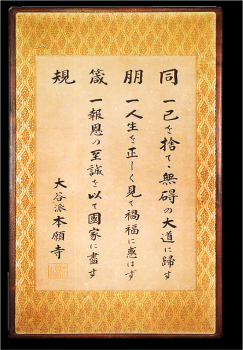 同朋箴規
一己を捨て、無碍の大道に帰す
一人生を正しく見て禍福に惑はず
一報恩の至誠を以て國家に盡す
大谷派本願寺